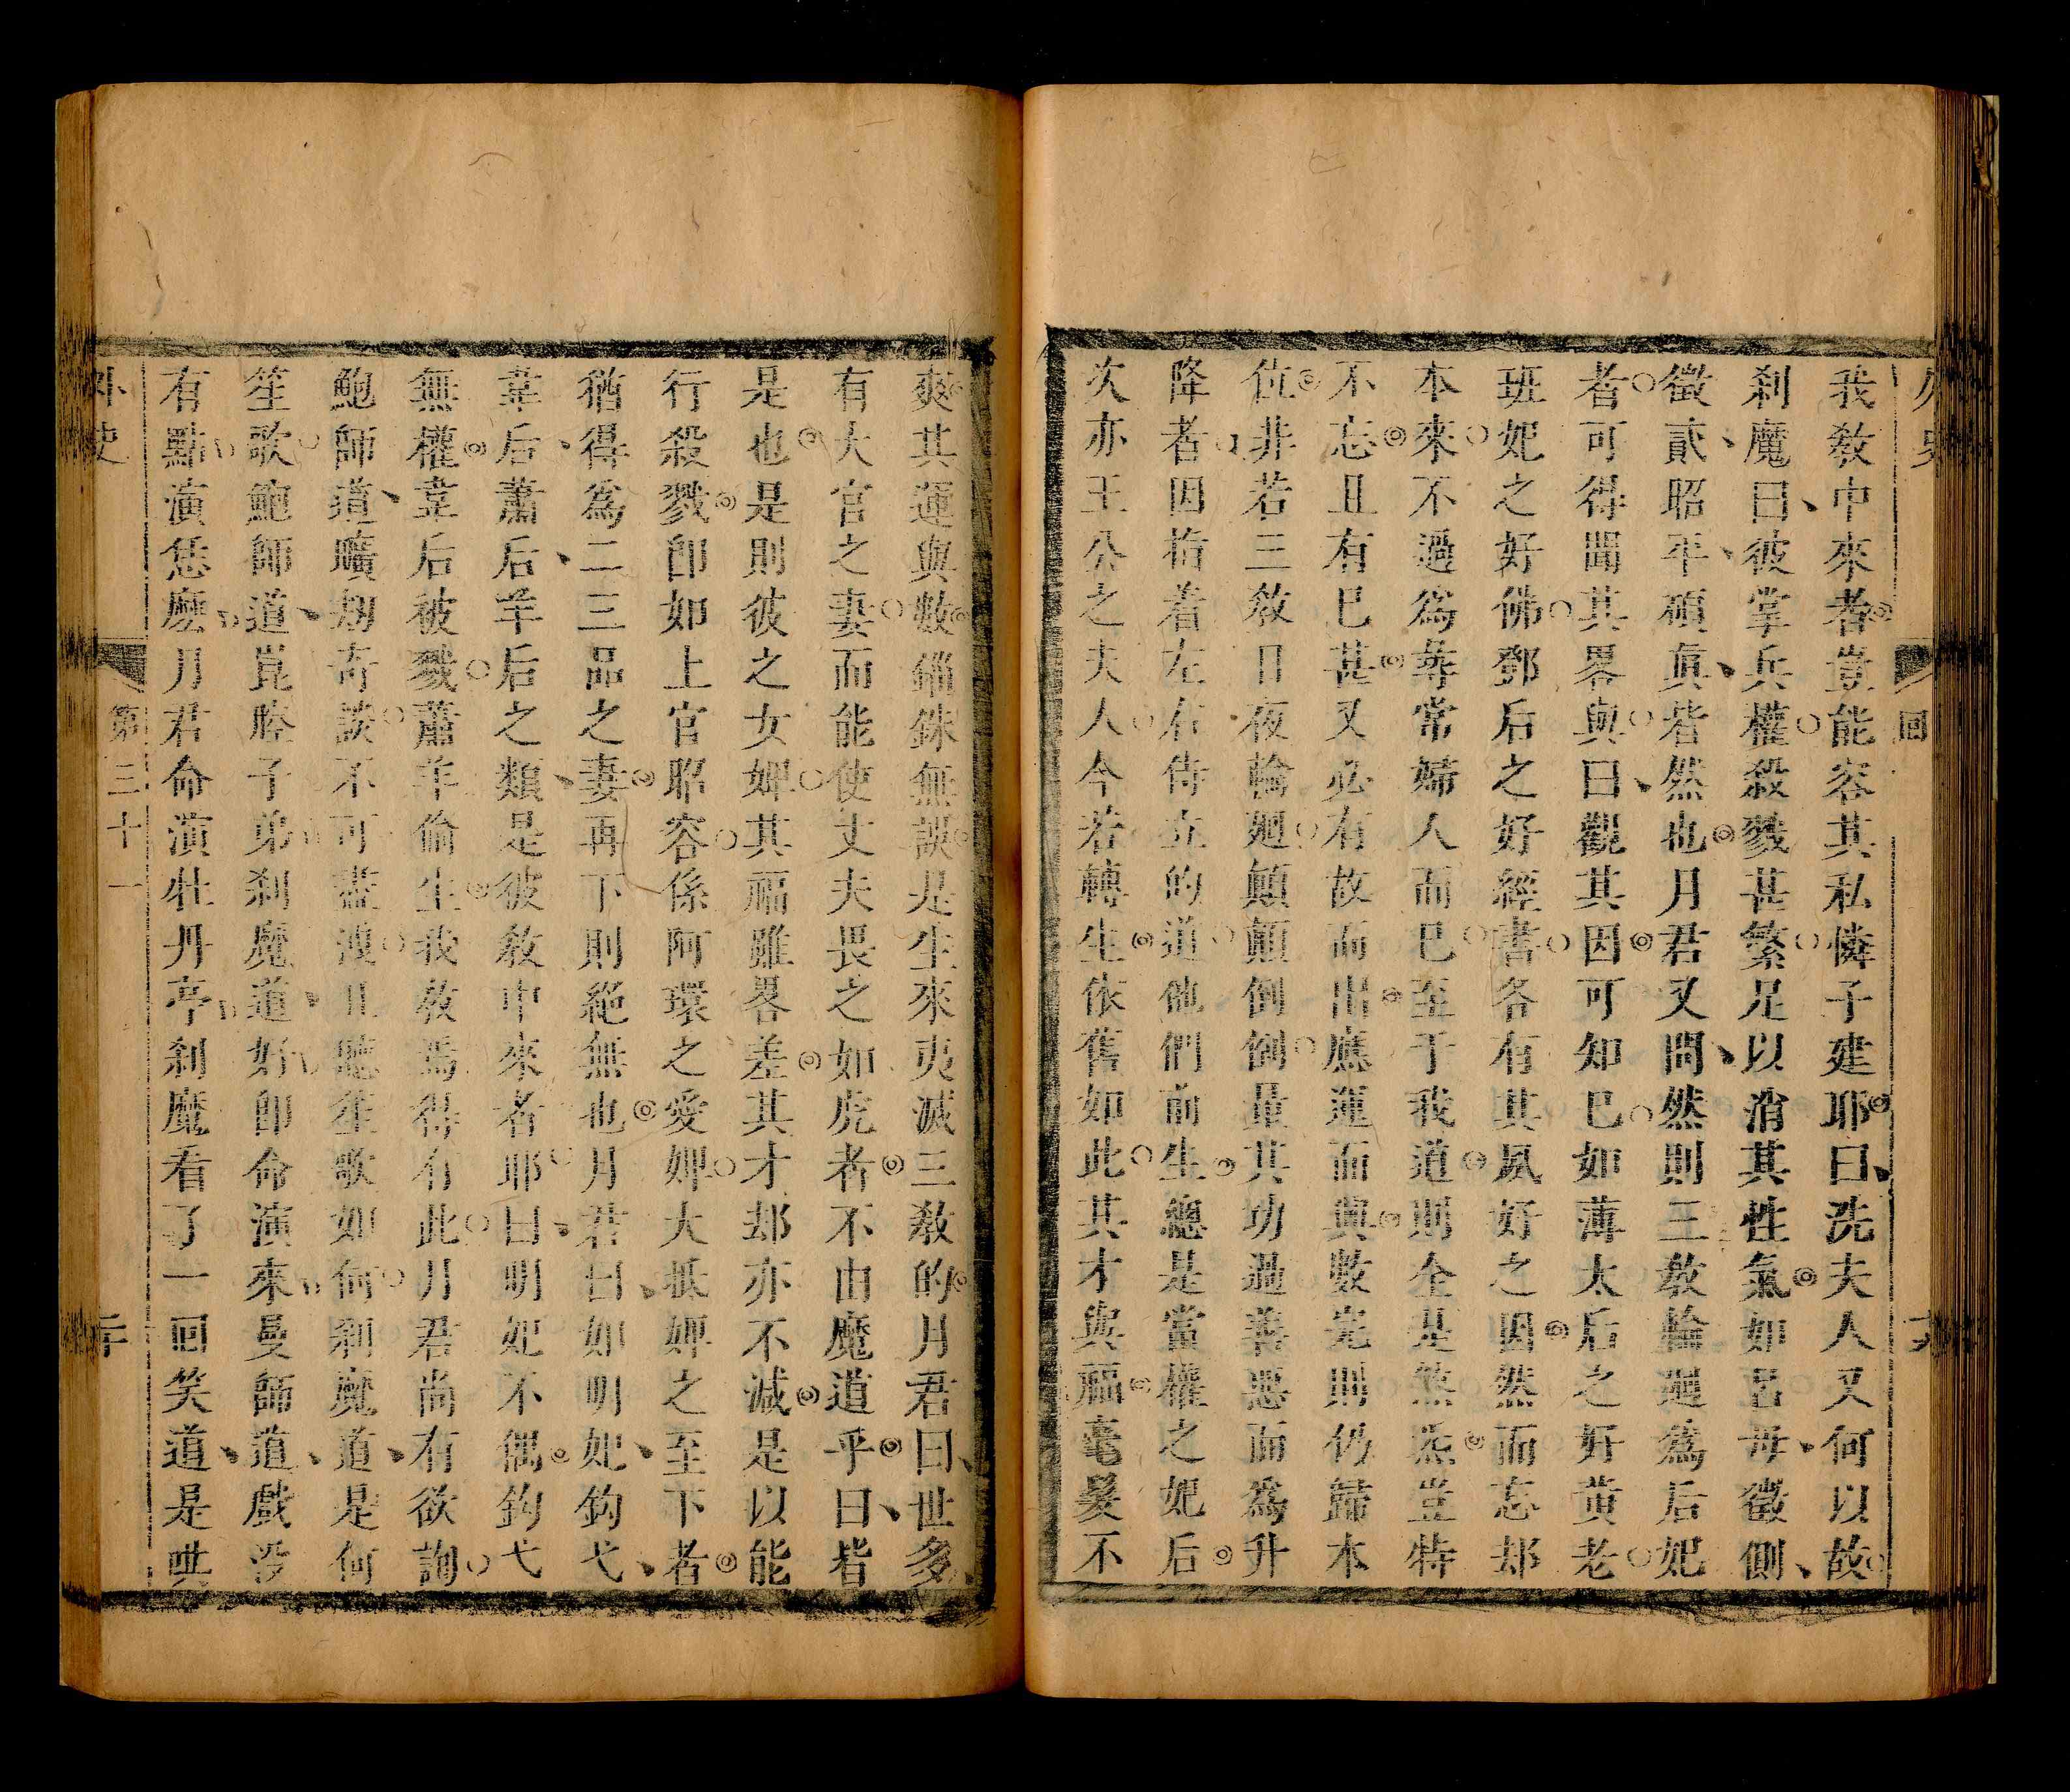 我教中來者豈能容其私憐子建耶曰洗夫人又何以故
刹魔曰彼掌兵權殺戮甚繁足以消其性氣如呂母徵側
徵貳昭平碩眞皆然也月君又問然則三教輪廻為后妃
者可得聞其畧與曰觀其因可知巳如薄太后之好黃老
班妃之好佛鄧后之好經書各有其夙好之因然而忘却
本來不過為尋常婦人而巳至于我道則全是煞炁豈特
不忘且有巳甚又必有故而出應運而興數完則仍歸本
位非若三教日夜輪廻顛顛倒倒量其功過善惡而為升
降者因指着左右侍立的道他們前生總是當權之妃后
次亦王公之夫人今若轉生依舊如此其才與福毫髮不
爽其運與數錙銖無誤是生來夷滅三教的月君曰世多
有大官之妻而能使丈夫畏之如虎者不由魔道乎曰皆
是也是則彼之女婢其福雖畧差其才却亦不減是以能
行殺戮即如上官昭容係阿環之愛婢大抵婢之至下者
猶得為二三品之妻再下則絕無也月君曰如明妃鈎弋
韋后蕭后羊后之類是彼教中來者耶曰明妃不偶鈎弋
無權韋后被戮蕭羊偷生我教焉得有此月君尚有欲詢
鮑師道曠刼奇談不可盡洩且聽笙歌如何刹魔道是何
笙歌鮑師道崑腔子弟刹魔道好即命演來曼師道戲沒
有點演恁麽月君命演牡丹亭刹魔看了一回笑道是哄
外史
第三十一
二十
外史
回